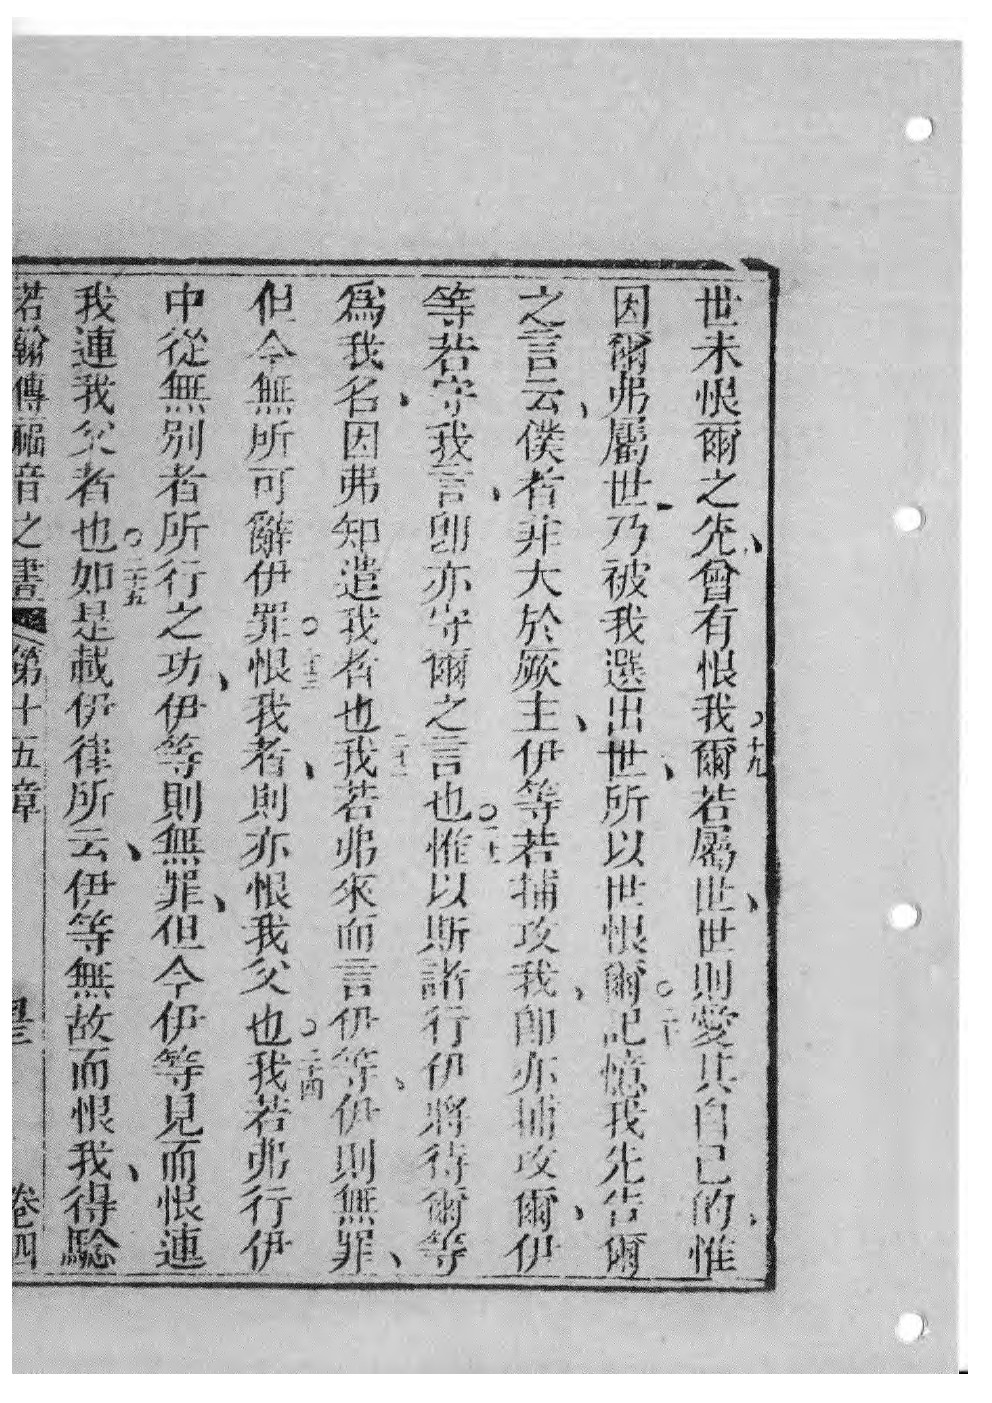 世未恨爾之先、曾有恨我。十九爾若屬世、世則愛其自己的、惟
因爾弗屬世、乃被我選出世、所以世恨爾。二十記憶我先告爾
之言云、僕者非大於厥主、伊等若捕攻我、卽亦捕攻爾、伊
等若守我言、卽亦守爾之言也。二十一惟以斯諸行伊將待爾等
爲我名、因弗知遣我者也。二十二我若弗來而言伊等、伊則無罪、
但今無所可辭伊罪。二十三恨我者、則亦恨我父也。二十四我若弗行伊
中從無別者所行之功、伊等則無罪、但今伊等見而恨連
我連我父者也。二十五如是載伊律所云、伊等無故而恨我、得騐
若翰傳福音之書 第十五章 卷四